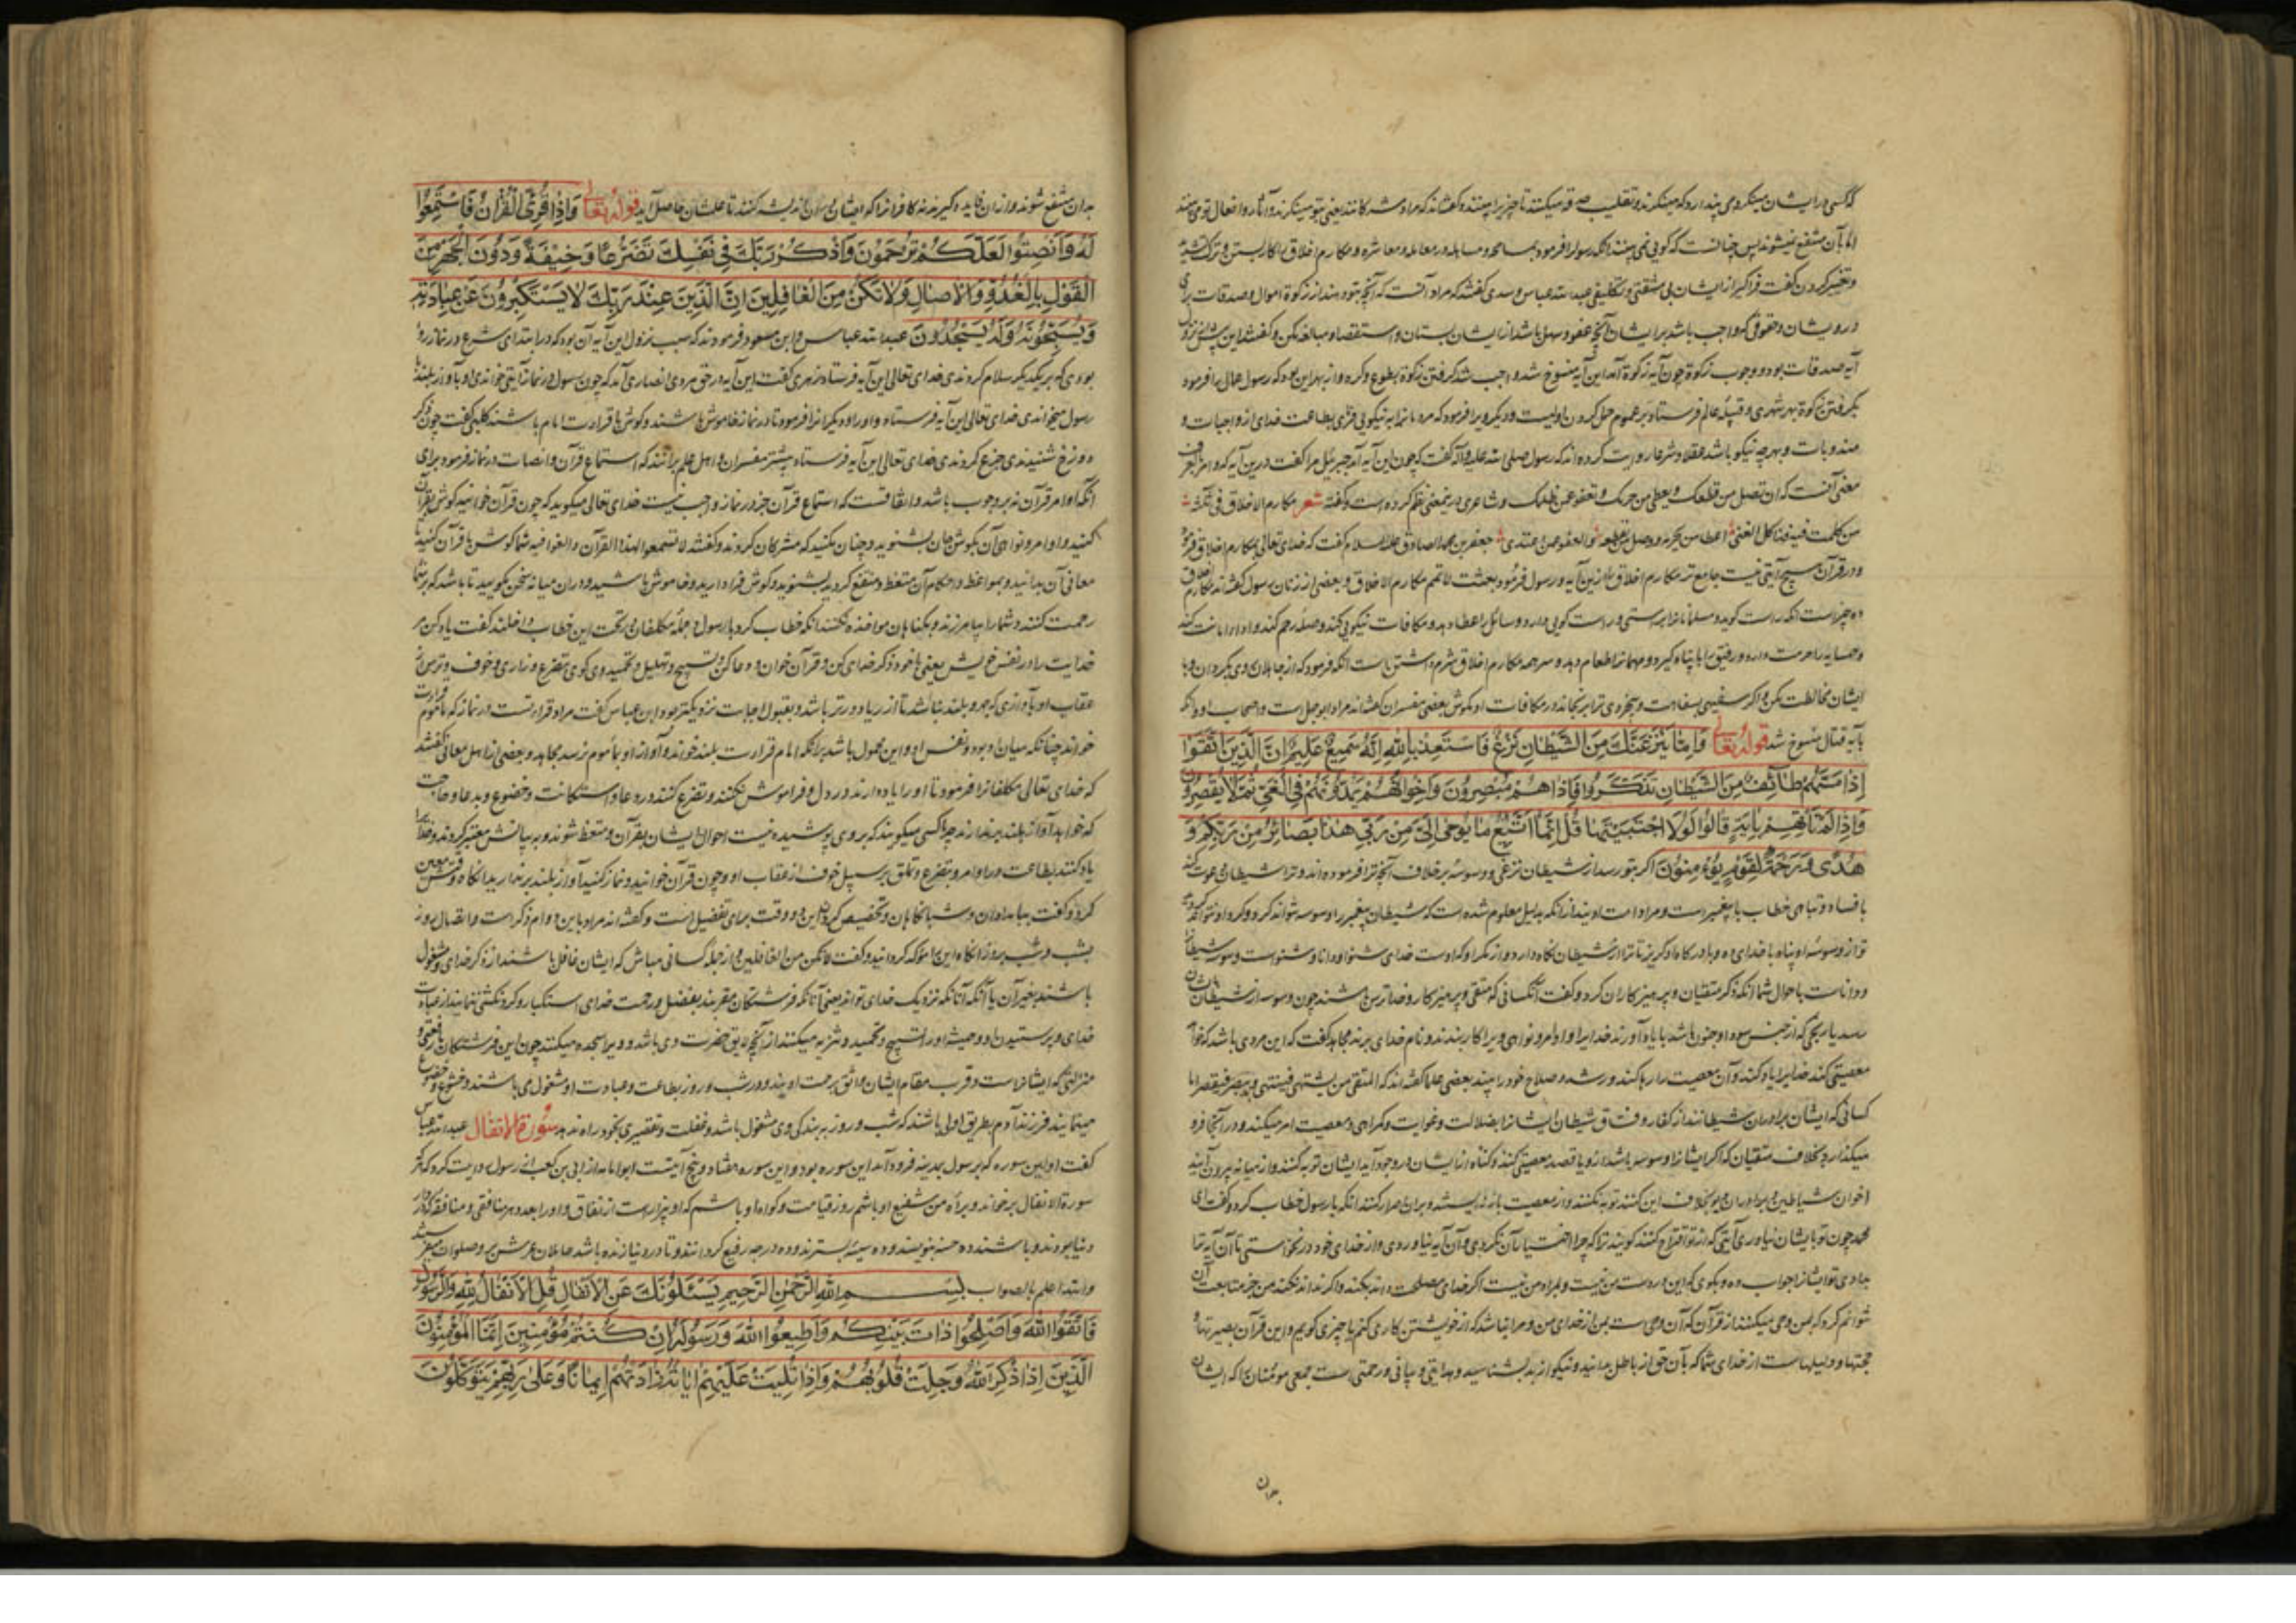 که کسی در ایشان مینگرد می پندارد که مینگرند و تقلیب حدقه میکنند تا چیزی را بینند و گفته‌اند که مراد مشرکانند یعنی بتو مینگرند و آثار و افعال تو می بینند
اما بآن منتفع نمیشوند پس چنانست که گویی نمی بینند آنگه رسول را فرمود بمسامحه و مساهله در معامله و معاشره و مکارم اخلاق بکار بستن و ترک تشدید
و تعسیر کردن گفت فراگیر از ایشان بی مشقتی و تکلیفی عبدالله عباس و سدی گفتند که مراد آنست که آنچه بتو دهند از زکوة اموال و صدقات برای
درویشان و حقوقی که واجب باشد بر ایشان آنچه عفو و سهل باشد از ایشان بستان و استقصا و مبالغه مکن و گفتند این پیش از نزول
آیه صدقات بود و وجوب زکوة چون آیه زکوة آمد این آیه منسوخ شد و واجب شد گرفتن زکوة بطوع و کره و از بهر این بود که رسول عمال را فرمود
بگرفتن زکوة بهر شهری و قبیله عالم فرستاد بر عموم حمل کردن اولیست و دیگر ویرا فرمود که مردمانرا به نیکویی فرمای بطاعت خدای از واجبات و
مندوبات و بهرچه نیکو باشد عقلا و شرعا روایت کرده اند که رسول صلی الله علیه و آله گفت که چون این آیه آمد جبرئیل مرا گفت درین آیه که وامر بالعرف
معنی آنست که ان تصل من قطعک و تعطی من حرمک و تعفو عمن ظلمک و شاعری در یمعنی نظم کرده است و گفته شعر مکارم الاخلاق فی ثلثة
من کملت فیه فذا کل الغنی اعطا من یحرمه و وصل من یقطعه و العفو عمن اعتدی جعفر بن محمد الصادق علیه السلام گفت که خدای تعالی بمکارم اخلاق فرمود
و در قرآن هیچ آیتی نیست جامع تر مکارم اخلاق را ازین آیه و رسول فرمود بعثت لاتمم مکارم الاخلاق و بعضی از زنان رسول گفته اند مکارم اخلاق
ده چیز است آنکه راست گوید و مسلمانانرا براستی و راست گویی دارد و سائل را عطا دهد و مکافات نیکویی کند و صله رحم کند و ادا امانت کند
و همسایه را حرمت دارد و رفیق را پناه گیرد و مهمانرا طعام دهد و سر همه مکارم اخلاق شرم داشتن است آنکه فرمود که از جاهلان روی بگردان و با
ایشان مخالطت مکن و اگر سفیهی بسفاهت و بیخردی ترا برنجاند در مکافات او مکوش بعضی مفسران گفته‌اند مراد ابوجهل است و اصحاب او و آنکه
بآیه قتال منسوخ شد قوله تعالی وَإِمَّا يَنْزَغَنَّكَ مِنَ الشَّيْطَانِ نَزْغٌ فَاسْتَعِذْ بِاللَّهِ إِنَّهُ سَمِيعٌ عَلِيمٌ إِنَّ الَّذِينَ اتَّقَوْا
إِذَا مَسَّهُمْ طَائِفٌ مِنَ الشَّيْطَانِ تَذَكَّرُوا فَإِذَا هُمْ مُبْصِرُونَ وَإِخْوَانُهُمْ يَمُدُّونَهُمْ فِي الْغَيِّ ثُمَّ لَا يُقْصِرُونَ
وَإِذَا لَمْ تَأْتِهِمْ بِآيَةٍ قَالُوا لَوْلَا اجْتَبَيْتَهَا قُلْ إِنَّمَا أَتَّبِعُ مَا يُوحَى إِلَيَّ مِنْ رَبِّي هَذَا بَصَائِرُ مِنْ رَبِّكُمْ وَ
هُدًى وَرَحْمَةٌ لِقَوْمٍ يُؤْمِنُونَ اگر بتو رسد از شیطان نزغی و وسوسه بر خلاف آنچه ترا فرموده اند و ترا شیطان دعوت کند
با فساد و تباهی خطاب با پیغمبر است و مراد امت اویند از آنکه بدلیل معلوم شده است که شیطان پیغمبر را وسوسه نتواند کرد
تو از وسوسه او پناه با خدای ده و با درگاه او گریز تا ترا از شیطان نگاه دارد و از مکر او که اوست خدای شنوا و دانا و شنواست وسوسه شیطانرا
و داناست باحوال شما آنکه ذکر متقیان و پرهیزکاران کرد و گفت آنکسانی که متقی و پرهیزکار و خدا ترس باشند چون وسوسه از شیطان بایشان
رسد یا رنجی که از جنس سودا و جنون باشد با یاد آورند خدایرا و اوامر و نواهی ویرا کار بندند و نام خدای برند مجاهد گفت که این مردی باشد که خواهد
معصیتی کند خدایرا یاد کند و آن معصیت را رها کند و رشد و صلاح خود را بیند بعضی علما گفته‌اند که المتقی من یشتهی فینتهی و یبصر فیقصر اما
کسانی که ایشان برادران شیطانند از کفار و فساق شیطان ایشانرا بضلالت و غوایت و گمراهی و معصیت امر میکنند و در آنجا فرو
میگذارد بخلاف متقیان که اگر ایشانرا وسوسه باشد از و یا قصد معصیتی کنند و گناه از ایشان در وجود آید ایشان توبه کنند و از میانه بیرون آیند
اخوان شیاطین و برادران دیو بخلاف این کنند توبه نکنند و از معصیت باز نه ایستند و بران اصرار کنند آنکه با رسول خطاب کرد و گفت ای
محمد چون تو بایشان نیاوری آیتی که از تو اقتراح کنند گویند ترا که چرا اختیار آن نکردی و آن آیه نیاوردی و از خدای خود درنخواستی تا آن آیه بتو
بدادی تو ایشانرا جواب ده و بگوی که این در دست من نیست و بمراد من نیست اگر خدای مصلحت داند بکند و اگر نداند نکند من جز متابعت آن
نتوانم کرد که بمن وحی میکنند از قرآن که آن وحی است بمن از خدای من و مرا نباشد که از خویشتن کاری کنم یا چیزی گویم و این قرآن بصیرتها و
حجتها و دلیلهاست از خدای شما که بآن حق از باطل بدانید و نیکو از بد بشناسید و هدایتی و بیانی و رحمتی است جمعی مؤمنان را که ایشان
بدان
بدان منتفع شوند و از ان فایده گیرند نه کافرانرا که ایشان در ان اندیشه نکنند تا علمشان حاصل آید قوله تعالی وَإِذَا قُرِئَ الْقُرْآنُ فَاسْتَمِعُوا
لَهُ وَأَنْصِتُوا لَعَلَّكُمْ تُرْحَمُونَ وَاذْكُرْ رَبَّكَ فِي نَفْسِكَ تَضَرُّعًا وَخِيفَةً وَدُونَ الْجَهْرِ مِنَ
الْقَوْلِ بِالْغُدُوِّ وَالْآصَالِ وَلَا تَكُنْ مِنَ الْغَافِلِينَ إِنَّ الَّذِينَ عِنْدَ رَبِّكَ لَا يَسْتَكْبِرُونَ عَنْ عِبَادَتِهِ
وَيُسَبِّحُونَهُ وَلَهُ يَسْجُدُونَ عبدالله عباس و ابن مسعود فرمودند که سبب نزول این آیه آن بود که در ابتدای شرع در نماز روا
بودی که بر یکدیگر سلام کردندی خدای تعالی این آیه فرستاد زهری گفت این آیه در حق مردی انصاری آمد که چون رسول در نماز آیتی خواندی او بآواز بلند با
رسول میخواندی خدای تعالی این آیه فرستاد و او را و دیگرانرا فرمود تا در نماز خاموش باشند و گوش با قراءت امام باشند کلبی گفت چون ذکر
دوزخ شنیدندی جزع کردندی خدای تعالی این آیه فرستاد بیشتر مفسران و اهل علم برانند که استماع قرآن و انصات در نماز فرمود برای
آنکه اوامر قرآن نه بر وجوب باشد و اتفاقست که استماع قرآن جز در نماز واجب نیست خدای تعالی میگوید که چون قرآن خوانید گوش بقرآن
کنید و اوامر و نواهی آن بگوش جان بشنوید و چنان مکنید که مشرکان کردند و گفتند لا تسمعوا لهذا القرآن و الغوا فیه شما گوش با قرآن کنید تا
معانی آن بدانید و بمواعظ و احکام آن متعظ و منتفع گردید بشنوید و گوش فرا دارید و خاموش باشید و در ان میانه سخن مگویید تا باشد که بر شما
رحمت کنند و شما را بیامرزند و بگناهان مواخذه نکنند آنکه خطاب کرد با رسول و جمله مکلفان در تحت این خطاب داخلند گفت یاد کن مر
خدایت را در نفس خویش یعنی با خود ذکر خدای کن و قرآن خوان و دعا کن و تسبیح و تهلیل و تحمید وی گوی بتضرع و زاری و خوف و ترس از
عقاب او بآوازی که جهر و بلند نباشد تا از ریا دورتر باشد و بقبول اجابت نزدیکتر بود و ابن عباس گفت مراد قراءتست در نماز که مأموم قراءت
خواند چنانکه میان او بود و نفس او و این محمول باشد برانکه امام قراءت بلند خواند و آواز او بمأموم نرسد مجاهد و بعضی از اهل معانی گفتند
که خدای تعالی مکلفانرا فرمود تا او را یاد دارند در دل و فراموش نکنند و تضرع کنند در دعا و استکانت و خضوع و بدعا و حاجت
که خواهد آواز بلند برندارند چرا کسی میگویند که بر وی پوشیده نیست احوال ایشان بقرآن متعظ شوند و به بیانش معتبر گردند و خدایرا
یاد کنند بطاعت در اوامر و بتضرع و تملق بر سبیل خوف از عقاب او و چون قرآن خوانید و نماز کنید آواز بلند برندارید آنگاه وقتش معین
کرد و گفت ببامدادان و شبانگاهان و تخصیص کردن این دو وقت برای تفضیل است و گفته‌اند مراد باین دوام ذکر است و اتصال روز
بشب و شب بروز آنگاه این را مؤکد گردانید و گفت لا تکن من الغافلین و از جمله کسانی مباش که ایشان غافل باشند از ذکر خدای و مشغول
باشند بغیر آن یا آنکه آنانکه نزدیک خدای تواند یعنی آنانکه فرشتگان مقربند بفضل و رحمت خدای استکبار و گردنکشی ننمایند از عبادت
خدای و پرستیدن او و همیشه او را تسبیح و تحمید و تنزیه میکنند از آنچه لایق حضرت وی نباشد و ویرا سجده میکنند چون این فرشتگان با رفعتی و
منزلتی که ایشانراست و قرب مقام ایشان واثق برحمت اویند و در شب و روز بطاعت و عبادت او مشغول می باشند و خشوع و خضوع
مینمایند فرزند آدم بطریق اولی باشند که شب و روز به بندگی وی مشغول باشد و غفلت و تقصیری بخود راه ندهد سورة الانفال عبدالله عباس
گفت اولین سوره که بر رسول بمدینه فرود آمد این سوره بود و این سوره هفتاد و پنج آیتست ابوامامه از ابی بن کعب از رسول روایت کرد که هر که
سورة الانفال برخواند و براة من شفیع او باشم روز قیامت و گواه او باشم که او بیزار است از نفاق و او را بعدد هر منافقی و منافقه که در دار
دنیا بودند و باشند ده حسنه بنویسند و ده سیئه بسترند و ده درجه رفیع گردانند و تا در دنیا زنده باشد حاملان عرش بر وی صلوات میفرستند
والله اعلم بالصواب بِسْمِ اللَّهِ الرَّحْمَنِ الرَّحِيمِ يَسْئَلُونَكَ عَنِ الْأَنْفَالِ قُلِ الْأَنْفَالُ لِلَّهِ وَالرَّسُولِ
فَاتَّقُوا اللَّهَ وَأَصْلِحُوا ذَاتَ بَيْنِكُمْ وَأَطِيعُوا اللَّهَ وَرَسُولَهُ إِنْ كُنْتُمْ مُؤْمِنِينَ إِنَّمَا الْمُؤْمِنُونَ
الَّذِينَ إِذَا ذُكِرَ اللَّهُ وَجِلَتْ قُلُوبُهُمْ وَإِذَا تُلِيَتْ عَلَيْهِمْ آيَاتُهُ زَادَتْهُمْ إِيمَانًا وَعَلَى رَبِّهِمْ يَتَوَكَّلُونَ